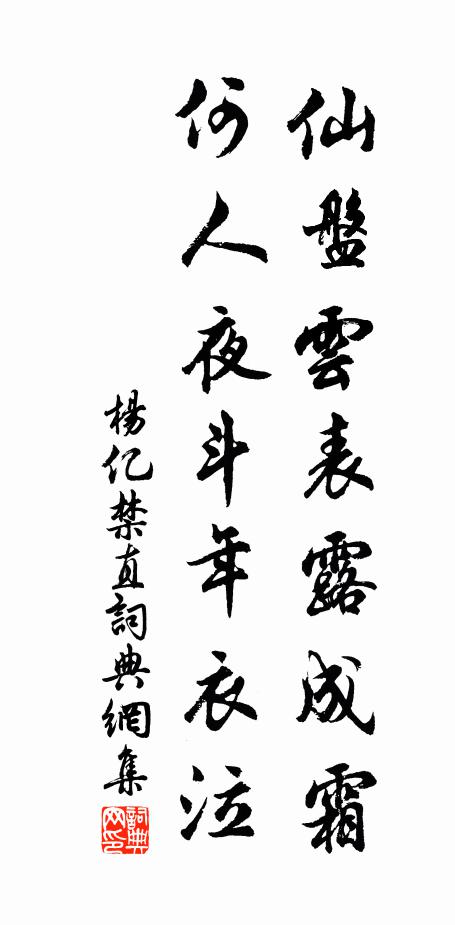 仙盤雲表露成霜
何人夜斗年衣泣
楊億禁直詞典網集
詞典网印